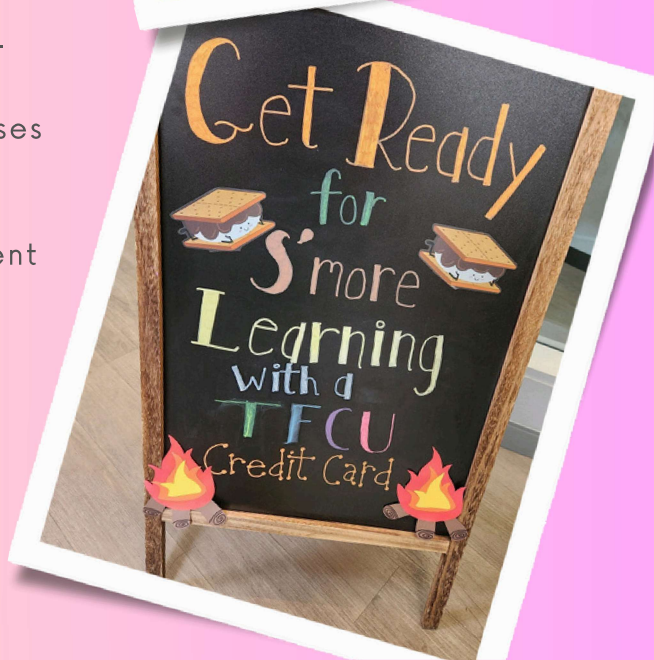 ses
ent
Get Ready
for
S'more
Learning
with a
TFCU
Credit Card